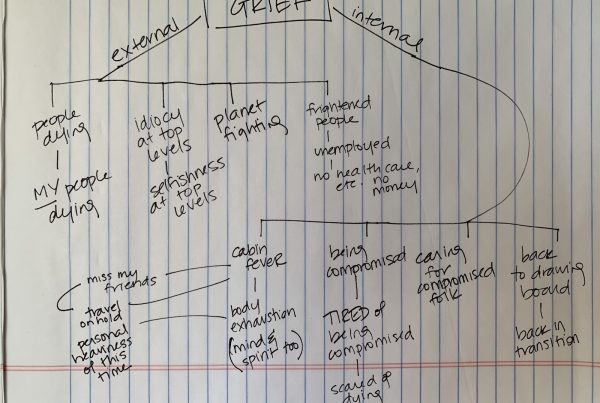 GRIEF
external
internal
people
dying
MY people
dying
idiocy
at top
levels
selfishness
at top
levels
planet
fighting
frightened
people
unemployed
no health care,
etc. no
money
cabin
fever
miss my
friends
travel
on hold
personal
heaviness
of this
time
body
exhaustion
(mind &
spirit too)
being
compromised
TIRED of
being
compromised
scared of
dying
caring
for
compromised
folk
back
to drawing
board
back in
transition